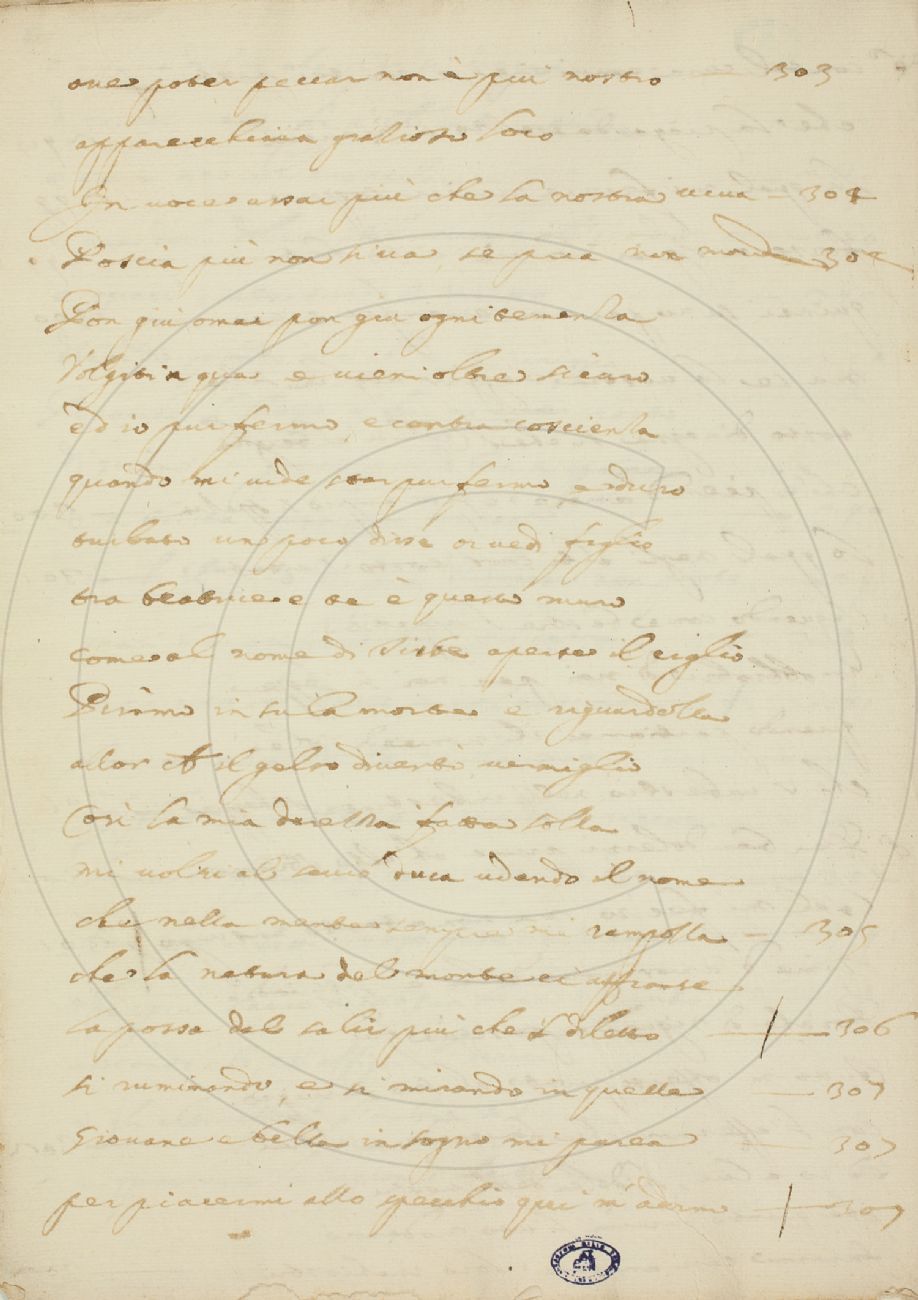 ove poter peccar non è più nostro — 303
apparecchiava grazioso loco
In voce assai più che la nostra viva — 304
Poscia più non si va, se pria non morde 305
Pon giù omai pon giu ogni temenza
Volgiti in qua e vieni oltre sicuro
ed io pur fermo, e contra coscienza
quando mi vide star pur fermo, e duro
turbato un poco disse or vedi figlio
tra beatrice e te è questo muro
come al nome di Tisbe aperse il ciglio
Piramo in su la morte e riguardolla
allor ch il gelso diventò vermiglio
Così la mia durezza fatta solla
mi volsi al savio duca udendo il nome
che nella mente sempre mi rampolla — 305
che la natura del monte ci affranse
la possa del salir più che 'l diletto — 306
si ruminando, e si mirando in quelle — 307
Giovane e bella in sogno mi parea — 307
per piacermi allo specchio qui m'adorno — 307